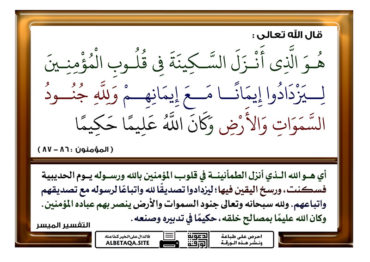 قال الله تعالى :
هُوَ الَّذِي أَنْزَلَ السَّكِينَةَ فِي قُلُوبِ الْمُؤْمِنِينَ
لِيَزْدَادُوا إِيمَانًا مَعَ إِيمَانِهِمْ وَلِلَّهِ جُنُودُ
السَّمَوَاتِ وَالْأَرْضِ وَكَانَ اللَّهُ عَلِيمًا حَكِيمًا
( المؤمنون : ٨٦ - ٨٧ )
أي هو الله الذي أنزل الطمأنينة في قلوب المؤمنين بالله ورسوله يوم الحديبية
فسكنت، ورسخ اليقين فيها؛ ليزدادوا تصديقًا لله واتباعًا لرسوله مع تصديقهم
واتباعهم. ولله سبحانه وتعالى جنود السموات والأرض ينصر بهم عباده المؤمنين.
وكان الله عليمًا بمصالح خلقه، حكيمًا في تدبيره وصنعه.
التفسير الميسر
احرص على طباعة
ونشر هذه الورقة
فالدال على الخير كفاعله
ALBETAQA.SITE